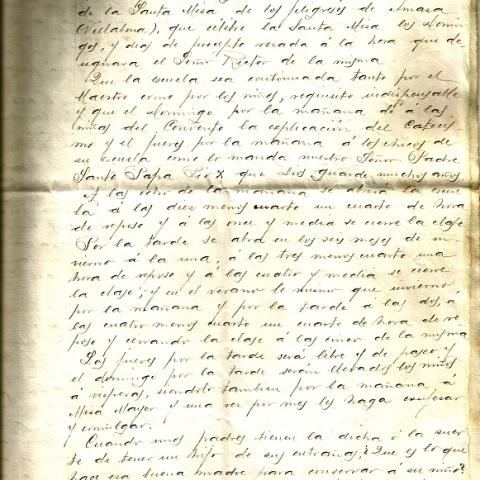 de la Santa Misa de los feligreses de Amasa
(Villabona), que célebre la Santa Misa los Domin-
gos, y dias de precepto rezada á la hora que de-
signara el Señor Rector de la misma.
Que la escuela sea continuada tanto por el
Maestro como por los niños, requisito indispensable
y que el Domingo por la mañana dé á las
niñas del Convento la esplicación del Catecis
mo y el jueves por la mañana á los chicos de
su escuela como lo manda nuestro Señor Padre
Santo Papa Pio X que Dios guarde muchos años.
A las ocho de la mañana se abrirá la escue
la á las diez menos cuarto un cuarto de hora
de reposo y á las once y media se cierre la clase
Por la tarde se abra en los seis meses de in-
vierno á la una, á las tres menos cuarto una
hora de reposo y á las cuatro y media se cierre
la clase; y en el verano lo mismo que invierno
por la mañana y por la tarde á las dos, á
las cuatro menos cuarto un cuarto de hora de re
poso y cerrando la clase á las cinco de la misma
Los jueves por la tarde será libre y de paseo y
el domingo por la tarde serán llevados los niños
á visperas, siendolo tambien por la mañana á
Misa Mayor y una vez por mes los haga confesar
y comulgar.
Cuando unos padres tienen la dicha ó la suer
te de tener un hijo de sus entrañas, ¿Que es lo que
hace esa buena madre para conservar á su niño?